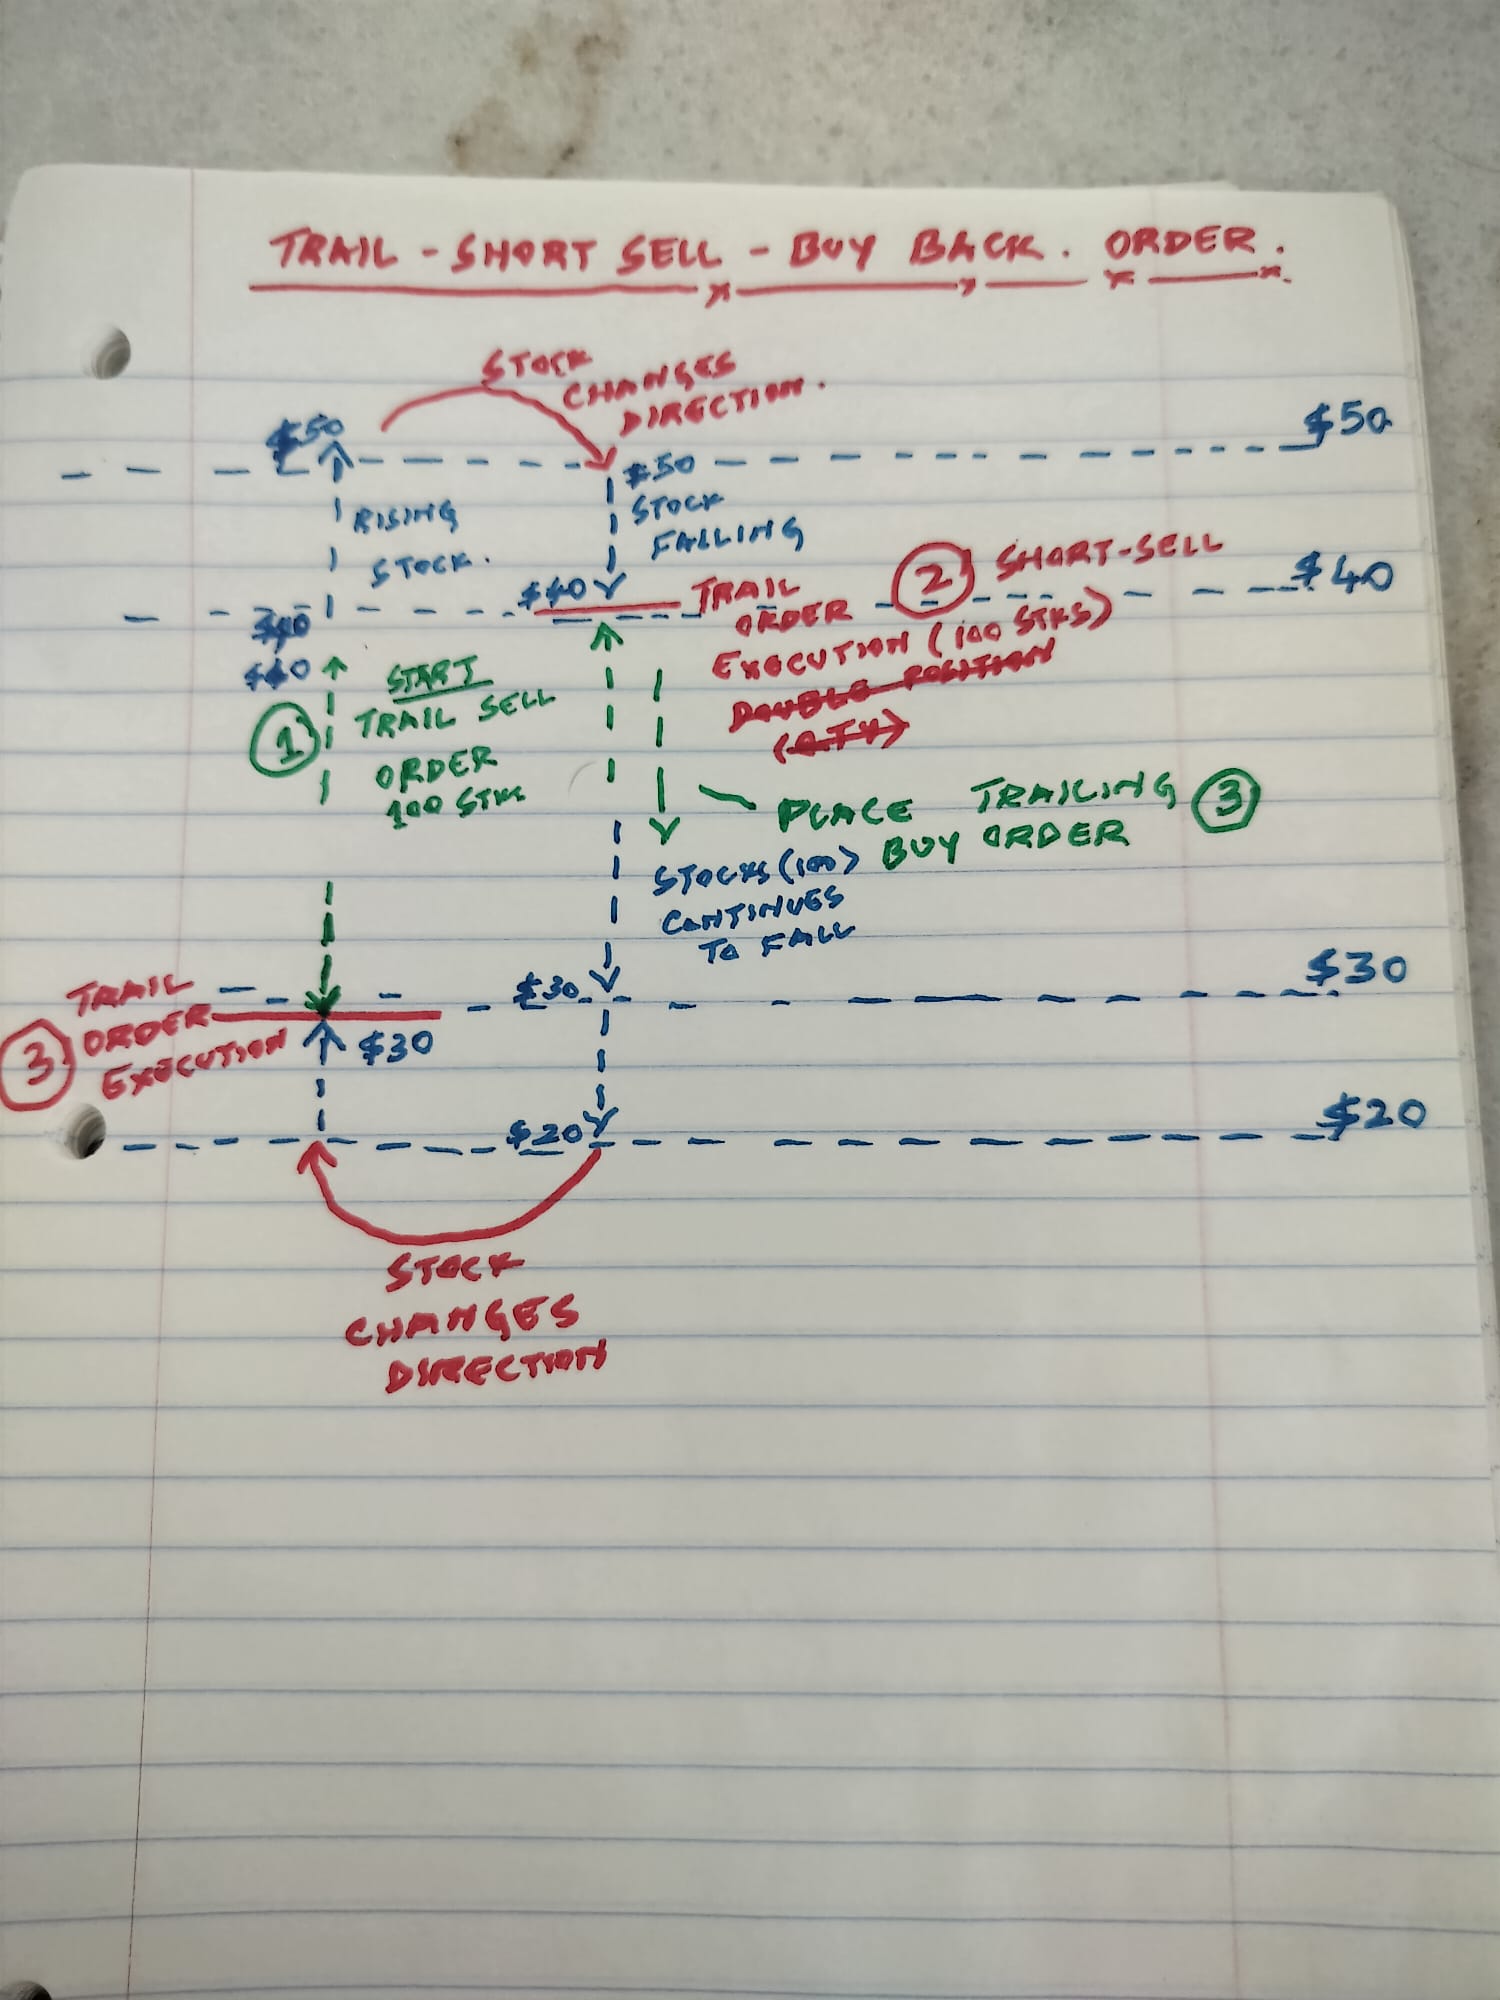 TRAIL - SHORT SELL - BUY BACK. ORDER.
STOCK
CHANGES
DIRECTION.
$50
$50
$50
RISING
STOCK.
STOCK
FALLING
$40
$40
$40
$40
TRAIL
ORDER
EXECUTION (100 STKS)
2 SHORT-SELL
DOUBLE POSITION
(QTY)
1
START
TRAIL SELL
ORDER
100 STKS
PLACE TRAILING 3
BUY ORDER
STOCKS (100)
CONTINUES
TO FALL
$30
$30
3 TRAIL
ORDER
EXECUTION
$30
$20
$20
STOCK
CHANGES
DIRECTION